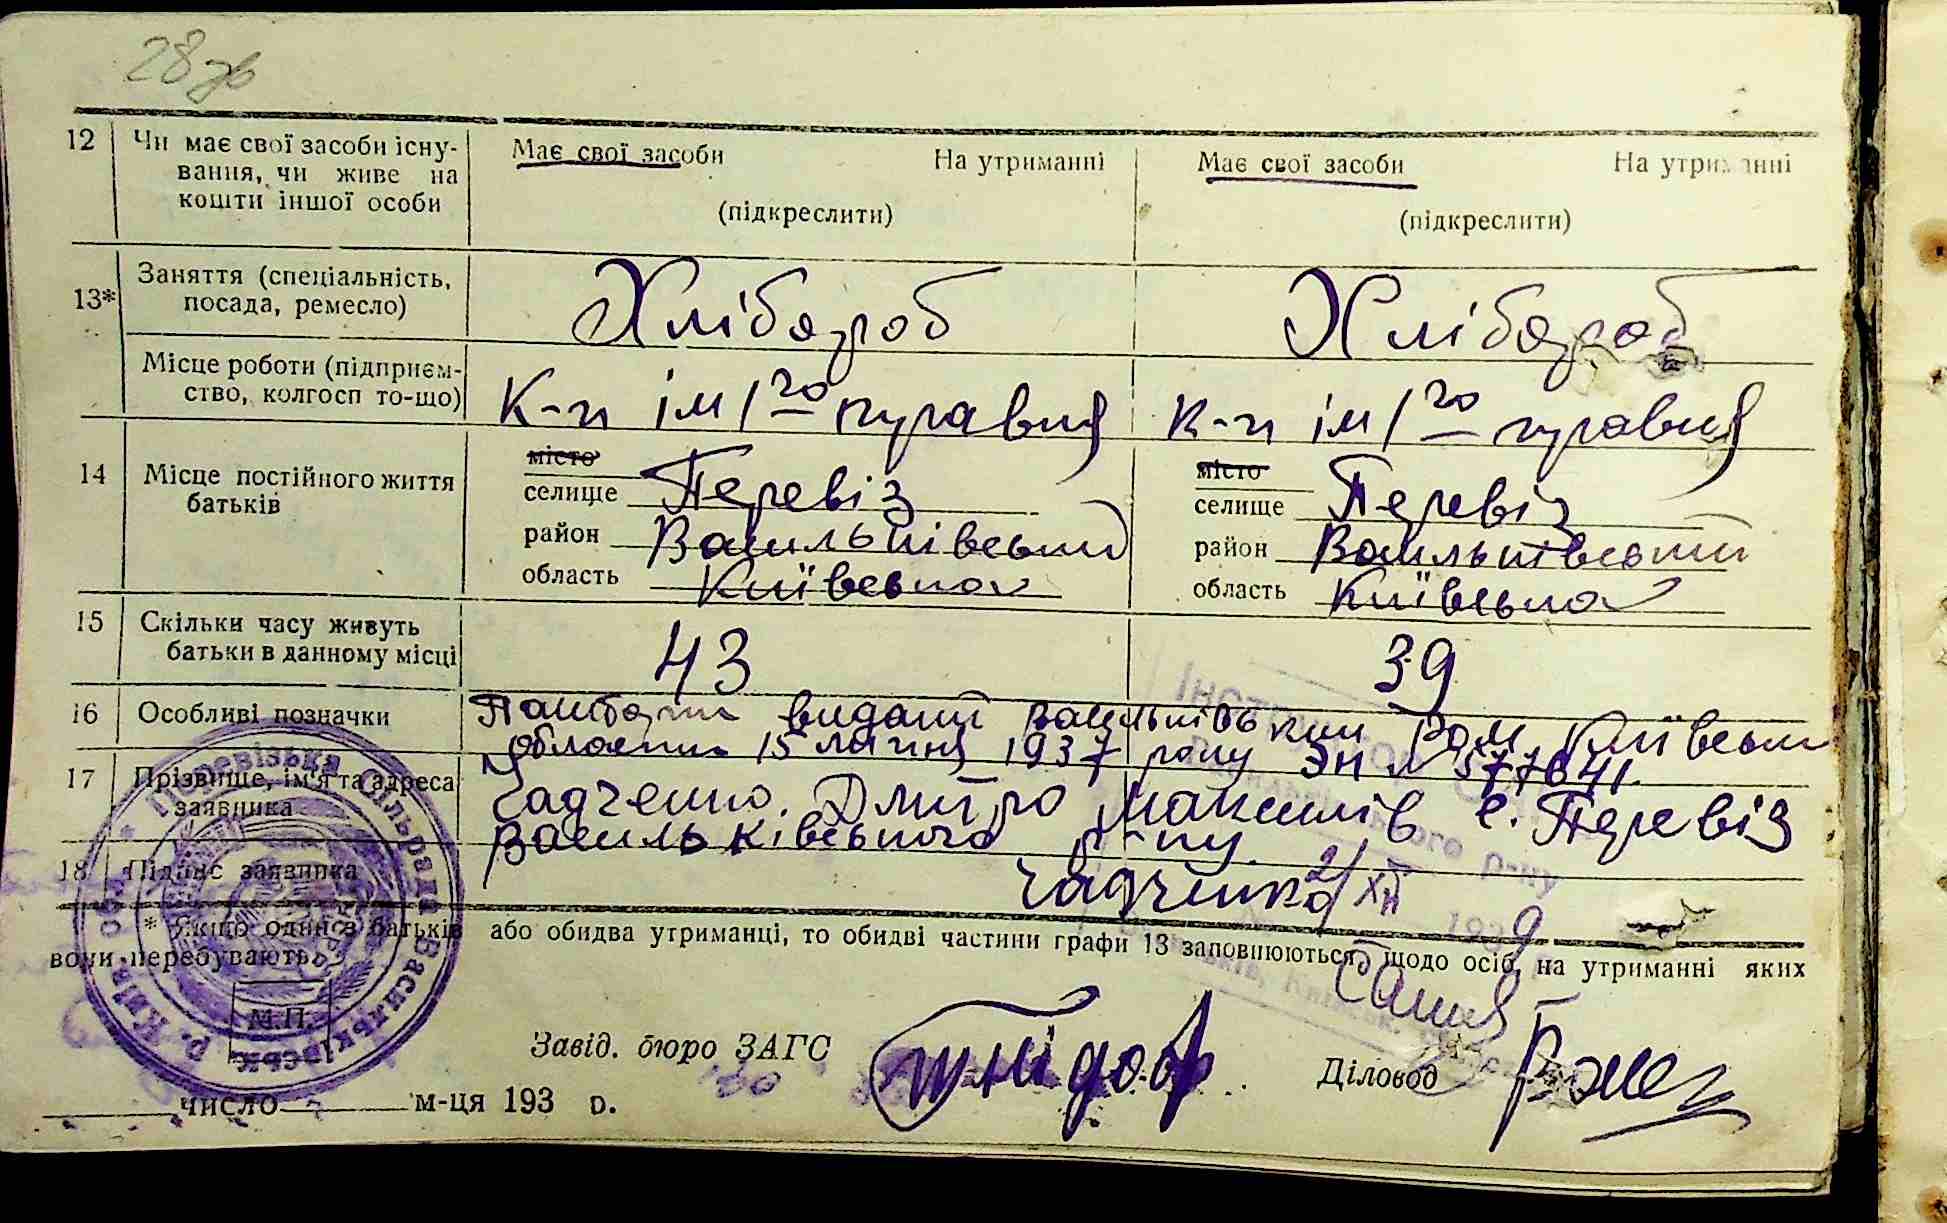 28зв
12 Чи має свої засоби існу-
вання, чи живе на
кошти іншої особи
Має свої засоби На утриманні
(підкреслити)
Має свої засоби На утриманні
(підкреслити)
13* Заняття (спеціальність,
посада, ремесло)
Хлібороб Хлібороб
Місце роботи (підприєм-
ство, колгосп то-що)
К-п ім 1го травня К-п ім 1го травня
14 Місце постійного життя
батьків
місто
селище Перевіз
район Васильківський
область Київська
місто
селище Перевіз
район Васильківський
область Київська
15 Скільки часу живуть
батьки в данному місці
43 39
16 Особливі позначки
Пашборти видані Васильківським Київськ
Области 15 липня 1937 року ЭН № 577641.
17 Прізвище, ім'я та адреса
заявника
Дмитро Максимів с. Перевіз
Васильківського р-ну.
18 Підпис заявника
21/XII 9
* Якщо один з батьків або обидва утриманці, то обидві частини графи 13 заповнюються щодо осіб, на утриманні яких
вони перебувають.
М.П.
Завід. бюро ЗАГС
Діловод
число м-ця 193 р.
Перевізька сільрада Васильківськ. р. Київ. обл.